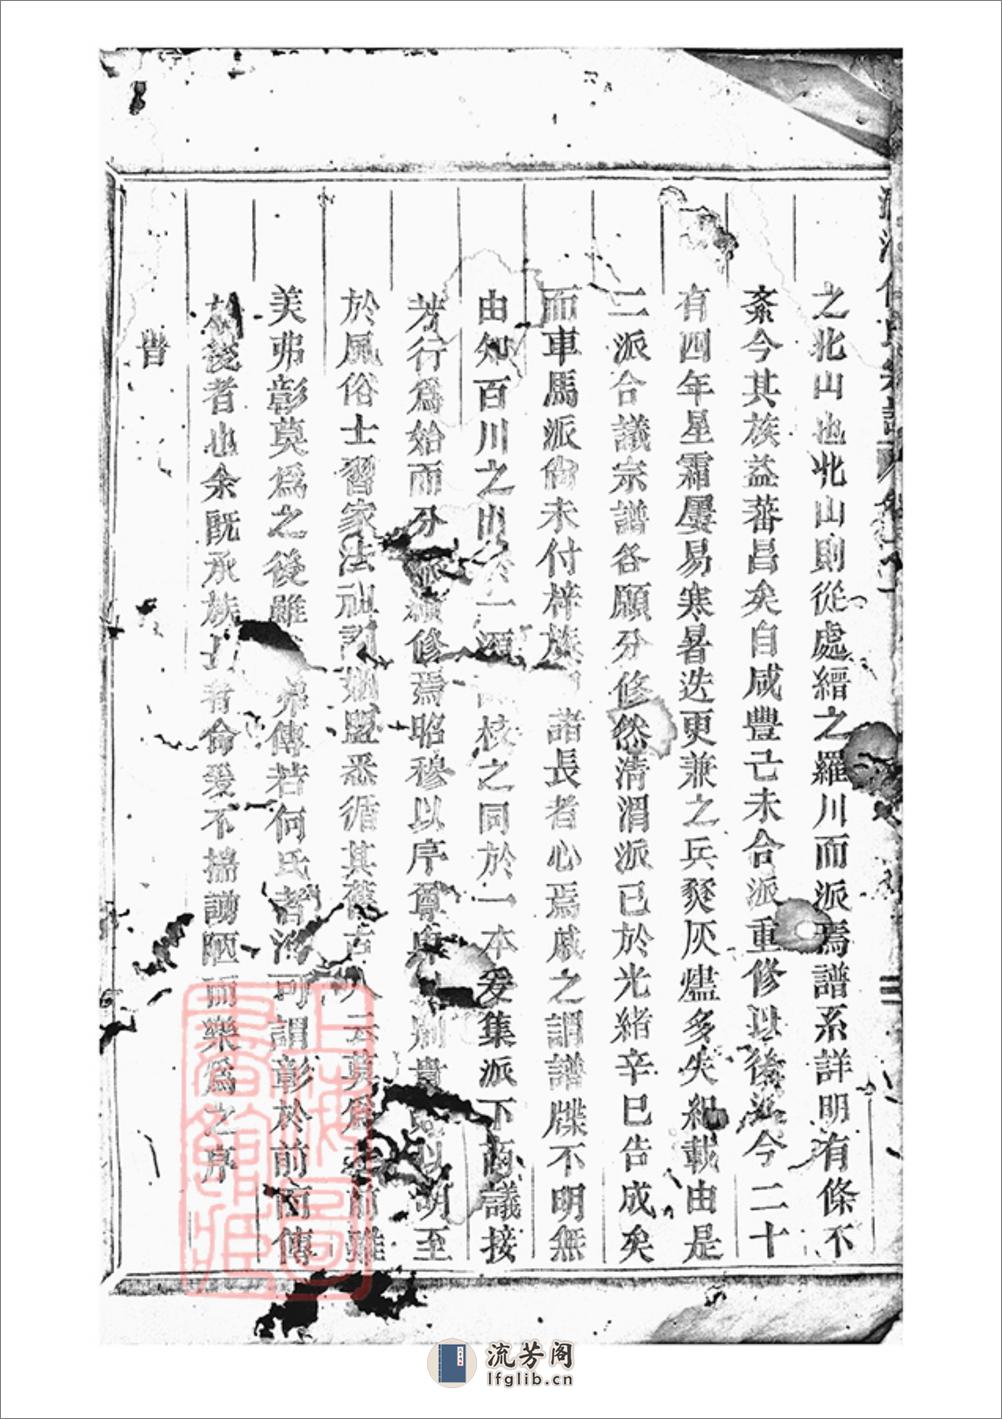 之北山也北山則從處縉之羅川而派焉譜系詳明有條不
紊今其族益蕃昌矣自咸豐己未合派重修以後迄今二十
有四年星霜屢易寒暑迭更兼之兵燹灰燼多失紀載由是
二派合議宗譜各願分修然清渭派已於光緒辛巳告成矣
而車馬派尚未付梓族諸長者心焉戚之謂譜牒不明無
由知百川之出一源校之同於一本爰集派下商議接
芳行為始而分修焉昭穆以序尊卑以別貴以明至
於風俗士習家法祖訓姻盟悉循其舊古人云莫為前雖
美弗彰莫為之後雖弗傳若何氏者洵可謂彰於前而傳
於後者也余既承族長者命爰不揣謭陋而樂為之序
旹
氏宗譜
上海圖書館藏
流芳阁
lfglib.cn